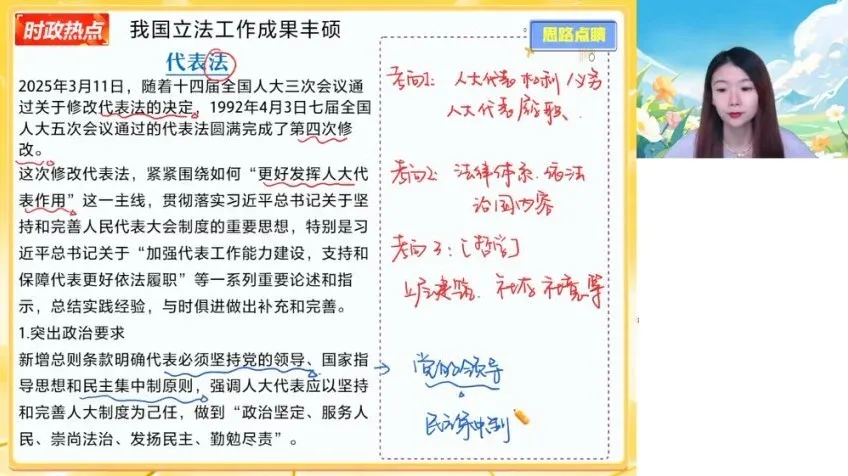 时政热点
我国立法工作成果丰硕
代表法
2025年3月11日，随着十四届全国人大三次会议通
过关于修改代表法的决定，1992年4月3日七届全国
人大五次会议通过的代表法圆满完成了第四次修
改。
这次修改代表法，紧紧围绕如何“更好发挥人大代
表作用”这一主线，贯彻落实习近平总书记关于坚
持和完善人民代表大会制度的重要思想，特别是习
近平总书记关于“加强代表工作能力建设，支持和
保障代表更好依法履职”等一系列重要论述和指
示，总结实践经验，与时俱进做出补充和完善。
1.突出政治要求
新增总则条款明确代表必须坚持党的领导、国家指
导思想和民主集中制原则，强调人大代表应以坚持
和完善人大制度为己任，做到“政治坚定、服务人
民、崇尚法治、发扬民主、勤勉尽责”。
思路点睛
考向1：人大代表权利/义务
人大代表履职、
考向2：法律体系、依法
治国内容
考向3：[哲学]
上层建筑、社存社意等
党的领导
民主集中制